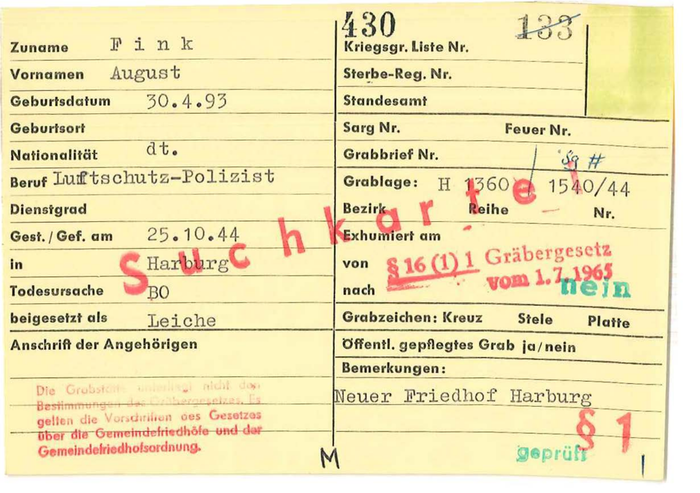 430
133
Zuname Fink
Kriegsgr. Liste Nr.
Vornamen August
Sterbe-Reg. Nr.
Geburtsdatum 30.4.93
Standesamt
Geburtsort
Sarg Nr. Feuer Nr.
Nationalität dt.
Grabbrief Nr.
Beruf Luftschutz-Polizist
Grablage: H 1360 / 1540/44
Dienstgrad
Bezirk Reihe Nr.
Gest./Gef. am 25.10.44
Exhumiert am
in Harburg
von
§ 16 (1) 1 Gräbergesetz
vom 1.7.1965
Todesursache BO
nach nein
beigesetzt als Leiche
Grabzeichen: Kreuz Stele Platte
Anschrift der Angehörigen
Öffentl. gepflegtes Grab ja/nein
Bemerkungen:
Neuer Friedhof Harburg
Suchkartei
Die Grabstätte unterliegt nicht den
Bestimmungen des Gräbergesetzes. Es
gelten die Vorschriften des Gesetzes
über die Gemeindefriedhöfe und der
Gemeindefriedhofsordnung.
§ 1
geprüft
M